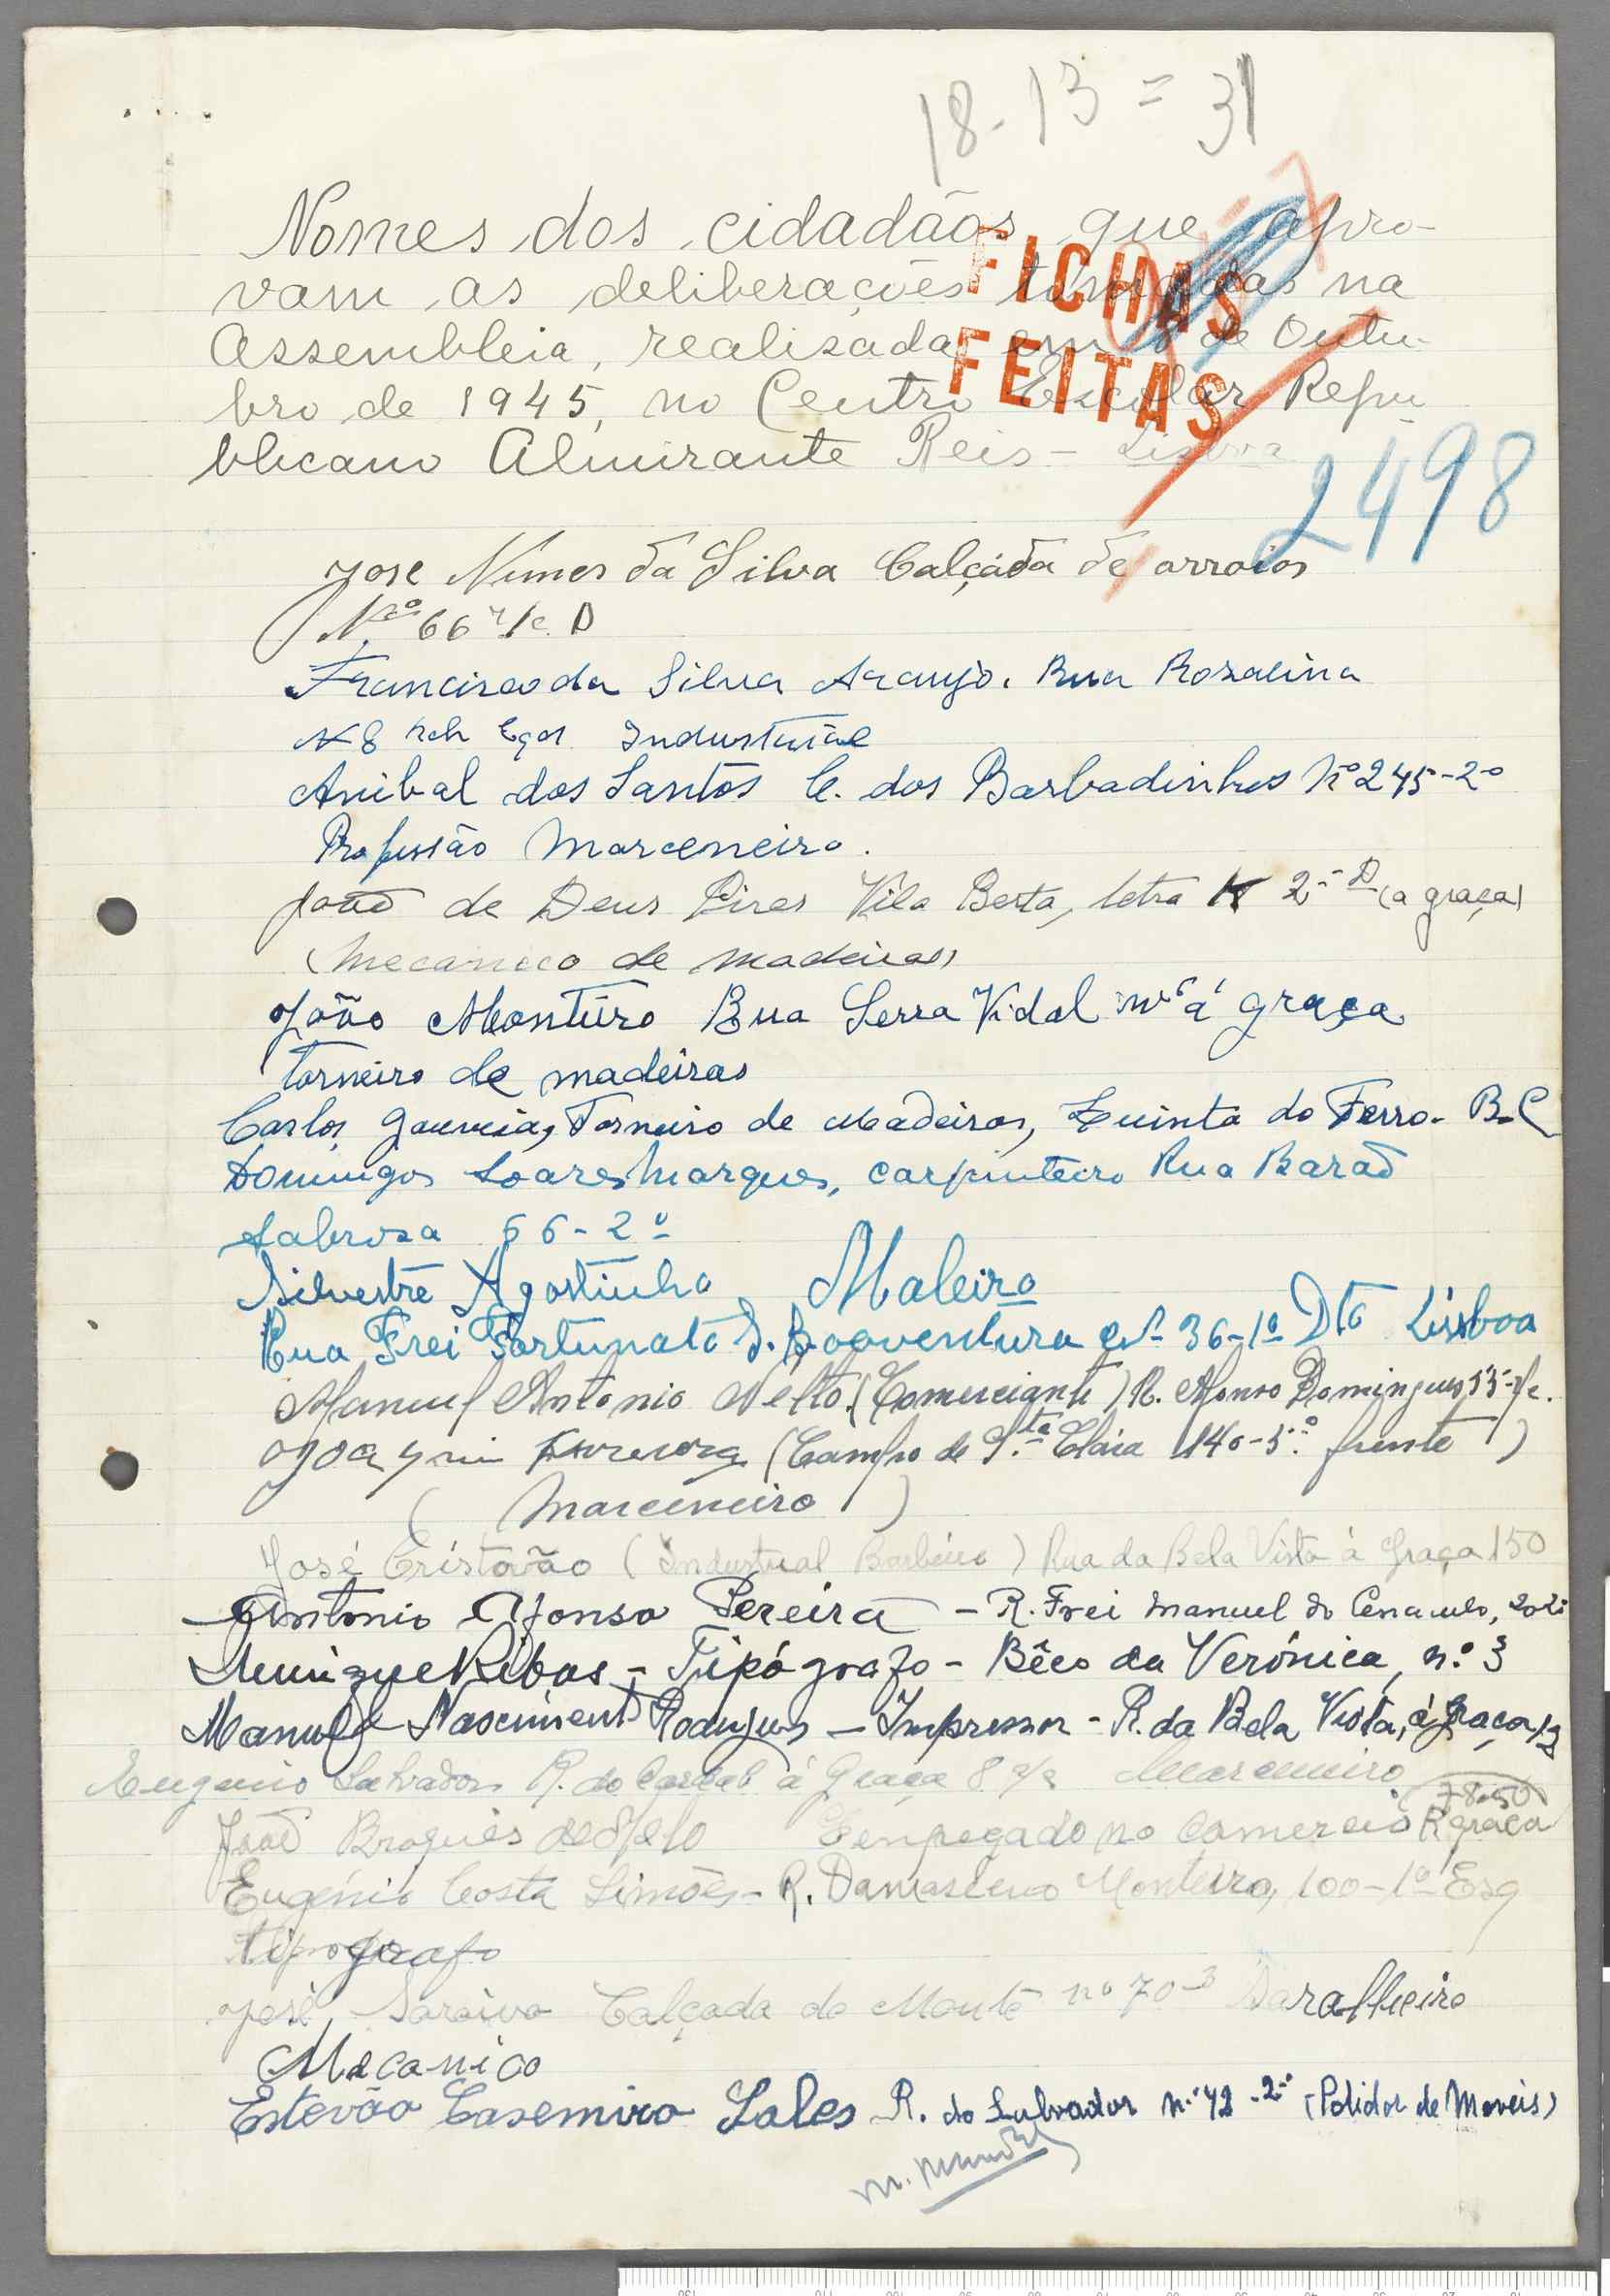 18-13=31
Nomes dos cidadãos que apro-
vam as deliberações tomadas na
Assembleia, realisada em 8 de Outu-
bro de 1945, no Centro Escolar Repu-
blicano Almirante Reis - Lisboa
FICHAS
FEITAS
2498
Jose Nunes da Silva Calçada de arroios
Nº 66 r/c D
Francisco da Silva Araujo. Rua Rozalina
N8 Industrial
Anibal dos Santos C. dos Barbadinhos Nº 245-2º
Profissão Marceneiro.
João de Deus Pires Vila Berta, letra K 2º D (a graça)
(Mecanico de madeiras)
João Monteiro Rua Serra Vidal á graça
Torneiro de madeiras
Carlos Gouveia, Torneiro de Madeiras, Quinta do Ferro-
Domingos Soares Marques, carpinteiro Rua Barão
Sabrosa 66-2º
Silvestre Agostinho Maleiro
Rua Frei Fortunato S. Boaventura Nº 36-1º Dtº Lisboa
Manuel Antonio Netto (Comerciante) R. Afonso Domingues, 55-r/c.
(Campo de S.ta Clara 140-5º frente)
(Marceneiro)
José Cristovão (Industrial Barbeiro) Rua da Bela Vista á Graça 150
Antonio Afonso Pereira - R. Frei Manuel do Cenaculo,
Ribas - Tipógrafo - Bêco da Verónica, n.º 3
Manuel Nascimento Rodrigues - Impressor - R. da Bela Vista, á Graça, 13
Eugenio Salvador R. do Cardal á Graça 8 r/c Marceneiro
78-5º
João Brogueis de Melo Empegado no Comercio R graça
Eugénio Costa Simões - R. Damasceno Monteiro, 100-1º Esq
tipografo
José Saraiva Calçada do Monte nº 70-3 Saralheiro
Mecanico
Estevão Casemiro Sales R. do Salvador nº 42-2º (Polidor de Moveis)